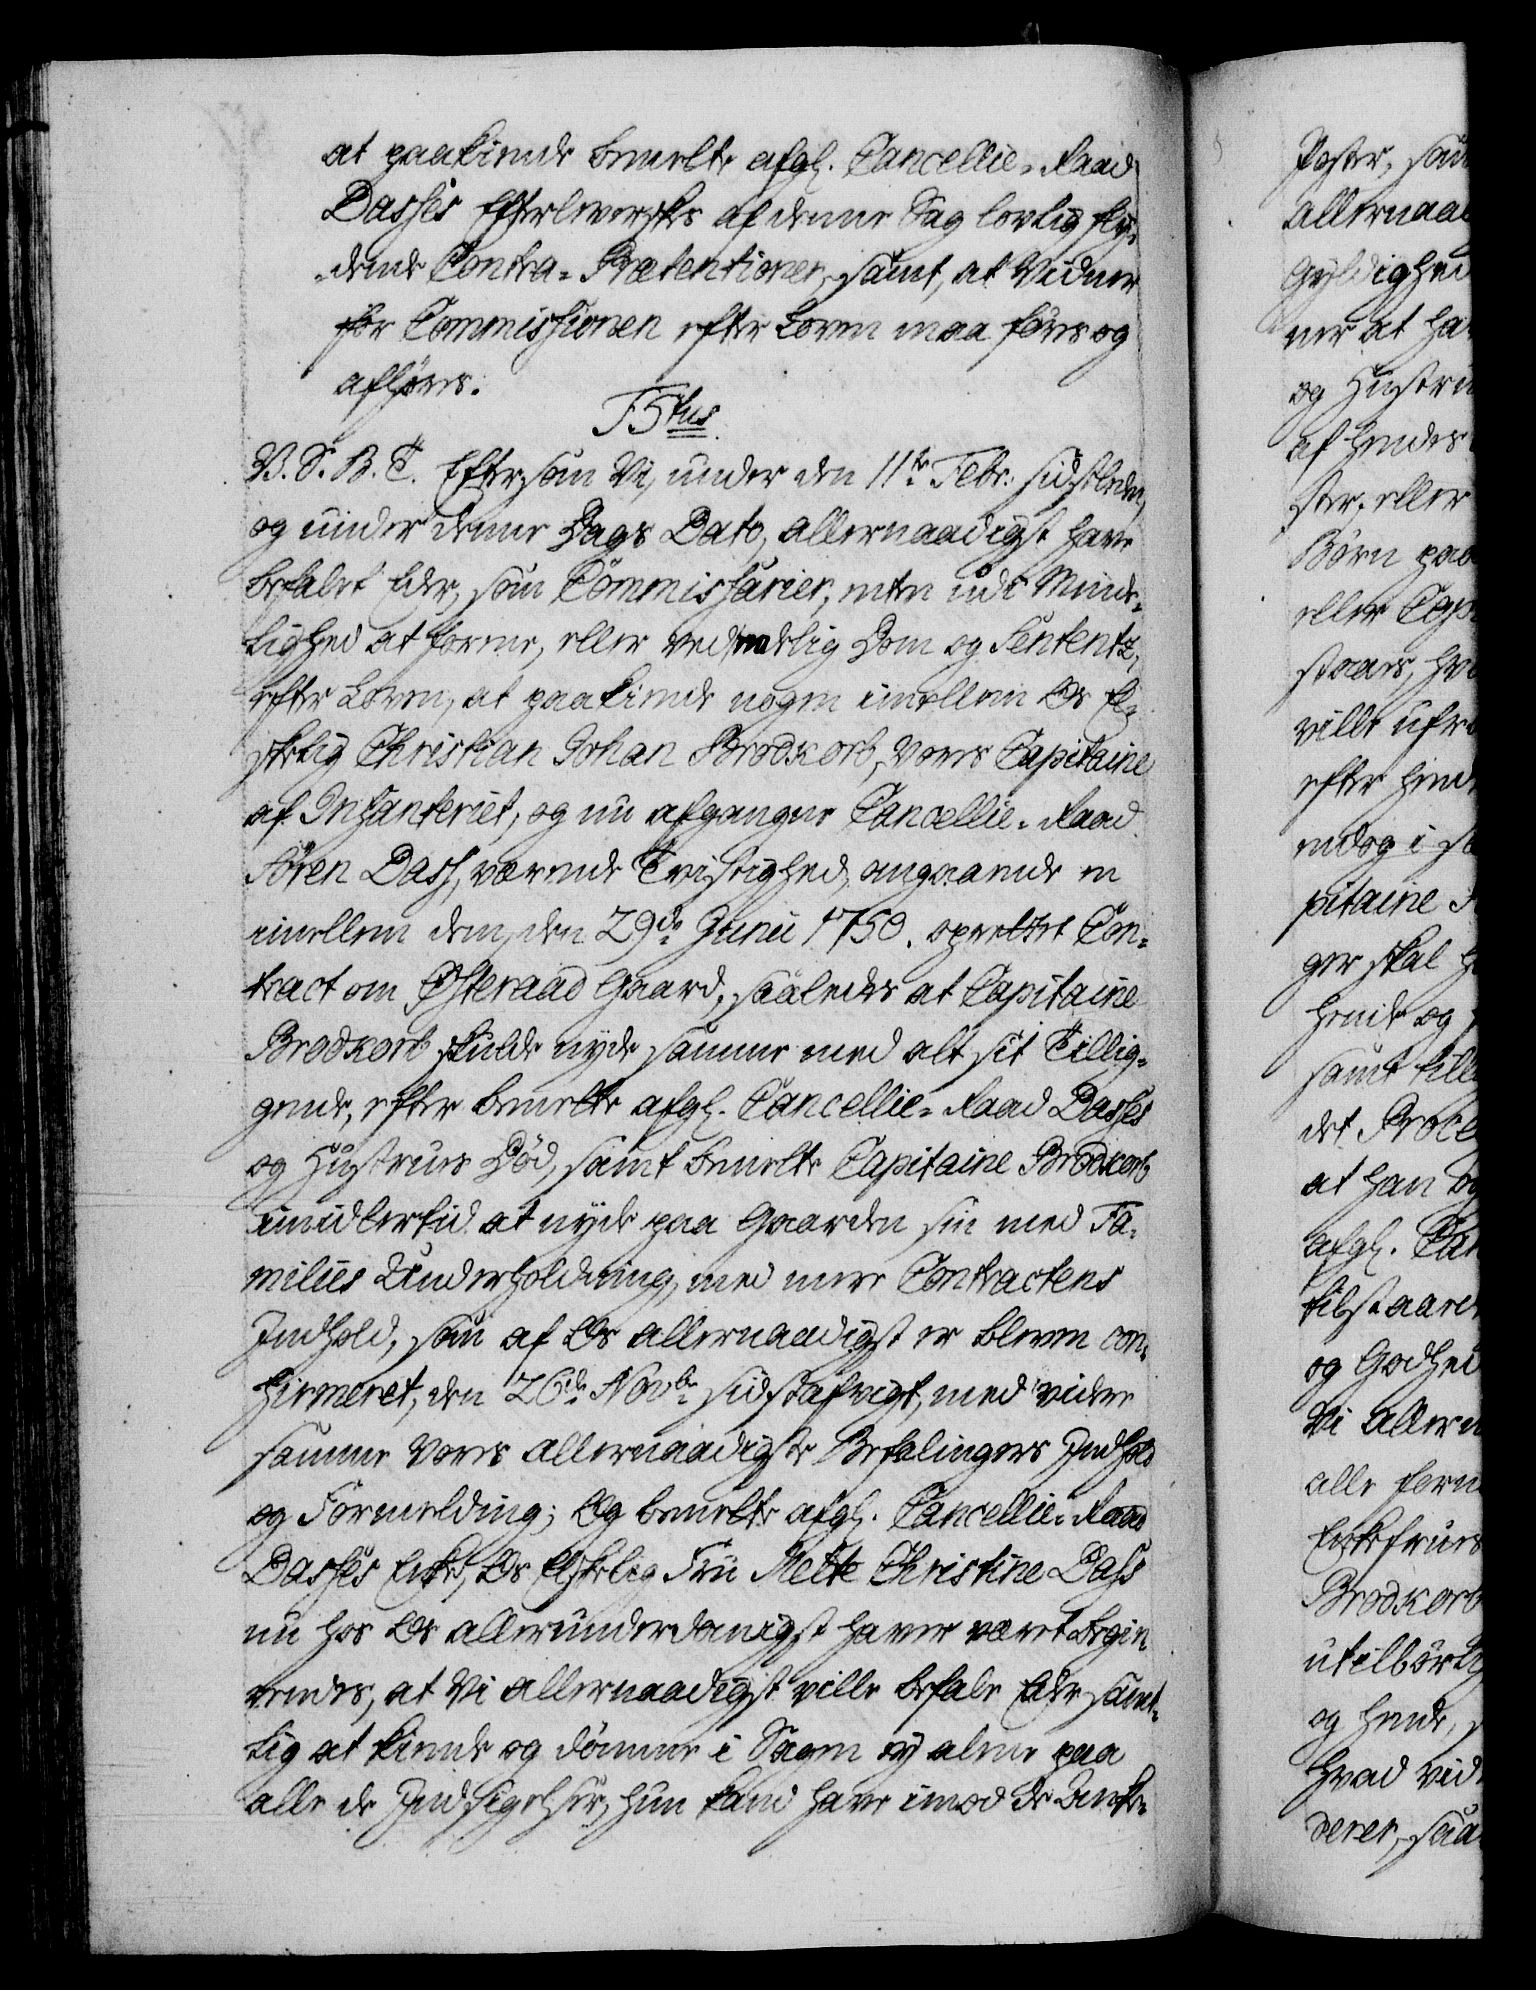 at paakiende bemelte afgl. Cancellie-Raad
Dasses Efterleverskes af denne Sag lovlig fly-
-dende Contra-Prætentioner, samt, at Vidner
for Commissionen efter Loven maa föres og
afhöres.
F5tus
V. S. B. T. Eftersom Vi, under den 11te Febr: sidstleden,
og under denne Dags Dato, allernaadigst have
befalet Eder, som Commissarier, enten udi Minde-
lighed at forene, eller ved endelig Dom og Sententz,
efter Loven, at paakiende nogen imellem Os El-
skelig Christian Johan Brodkorb, Vores Capitaine
af Infanteriet, og nu afgangne Cancellie-Raad
Sören Dass, værende Tvistighed, angaaende en
imellem dem, den 29de Junii 1750. oprettet Con-
tract om Österaad Gaard, saaledes at Capitaine
Brodkorb skulde nyde samme med alt sit Tillig-
gende, efter bemelte afgl. Cancellie-Raad Dasses
og Hustrues Död, samt bemelte Capitaine Brodkorb
imidlertid at nyde paa Gaarden sin med Fa-
milies Underholdning, med mere Contractens
Indhold, som af Os allernaadigst er bleven con-
firmeret, den 26de Novbr sidstafvigt, med videre
samme Vores allernaadigste Befalingers Indhold
og Formelding; Og bemelte afgl. Cancellie-Raad
Dasses Enke, Os Elskelig Frü Mette Christine Dass
nu hos Os allerunderdanigst haver været begie-
rendes, at Vi allernaadigst ville befale Eder samt-
lig at kiende og dömme i Sagen ej alene paa
alle de Indsigelser, hun kand have imod de

Poster, saa
allernaa
Gyldighed
ner at ha
og Hustru
af hendes
ster, eller
Börn paa
eller Capi
staaes, hv
ville ufr
efter hend
endog i
pitaine
ger skal
hende og
samt till
det Proce
at han
afgl. Can
tilstaaet
og Godhed
Vi allern
alle forn
Enkefrues
Brodkorb
utilbörlig
og hende,
hvad vid
derer, saa